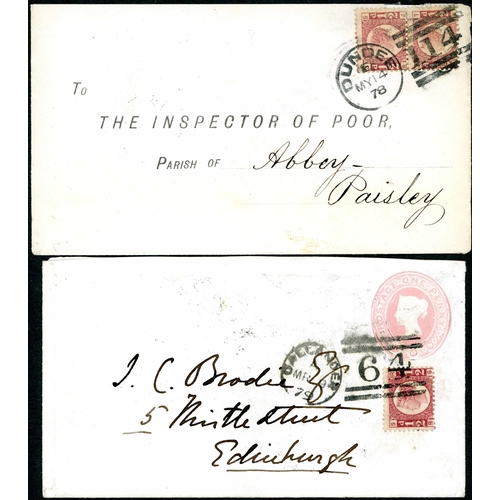 114
DUNDEE
MY 14
78
To
THE INSPECTOR OF POOR,
PARISH OF Abbey
Paisley
POSTAGE ONE PENNY
64
79
J. C. Brodie Esq
5 Thistle Street
Edinburgh